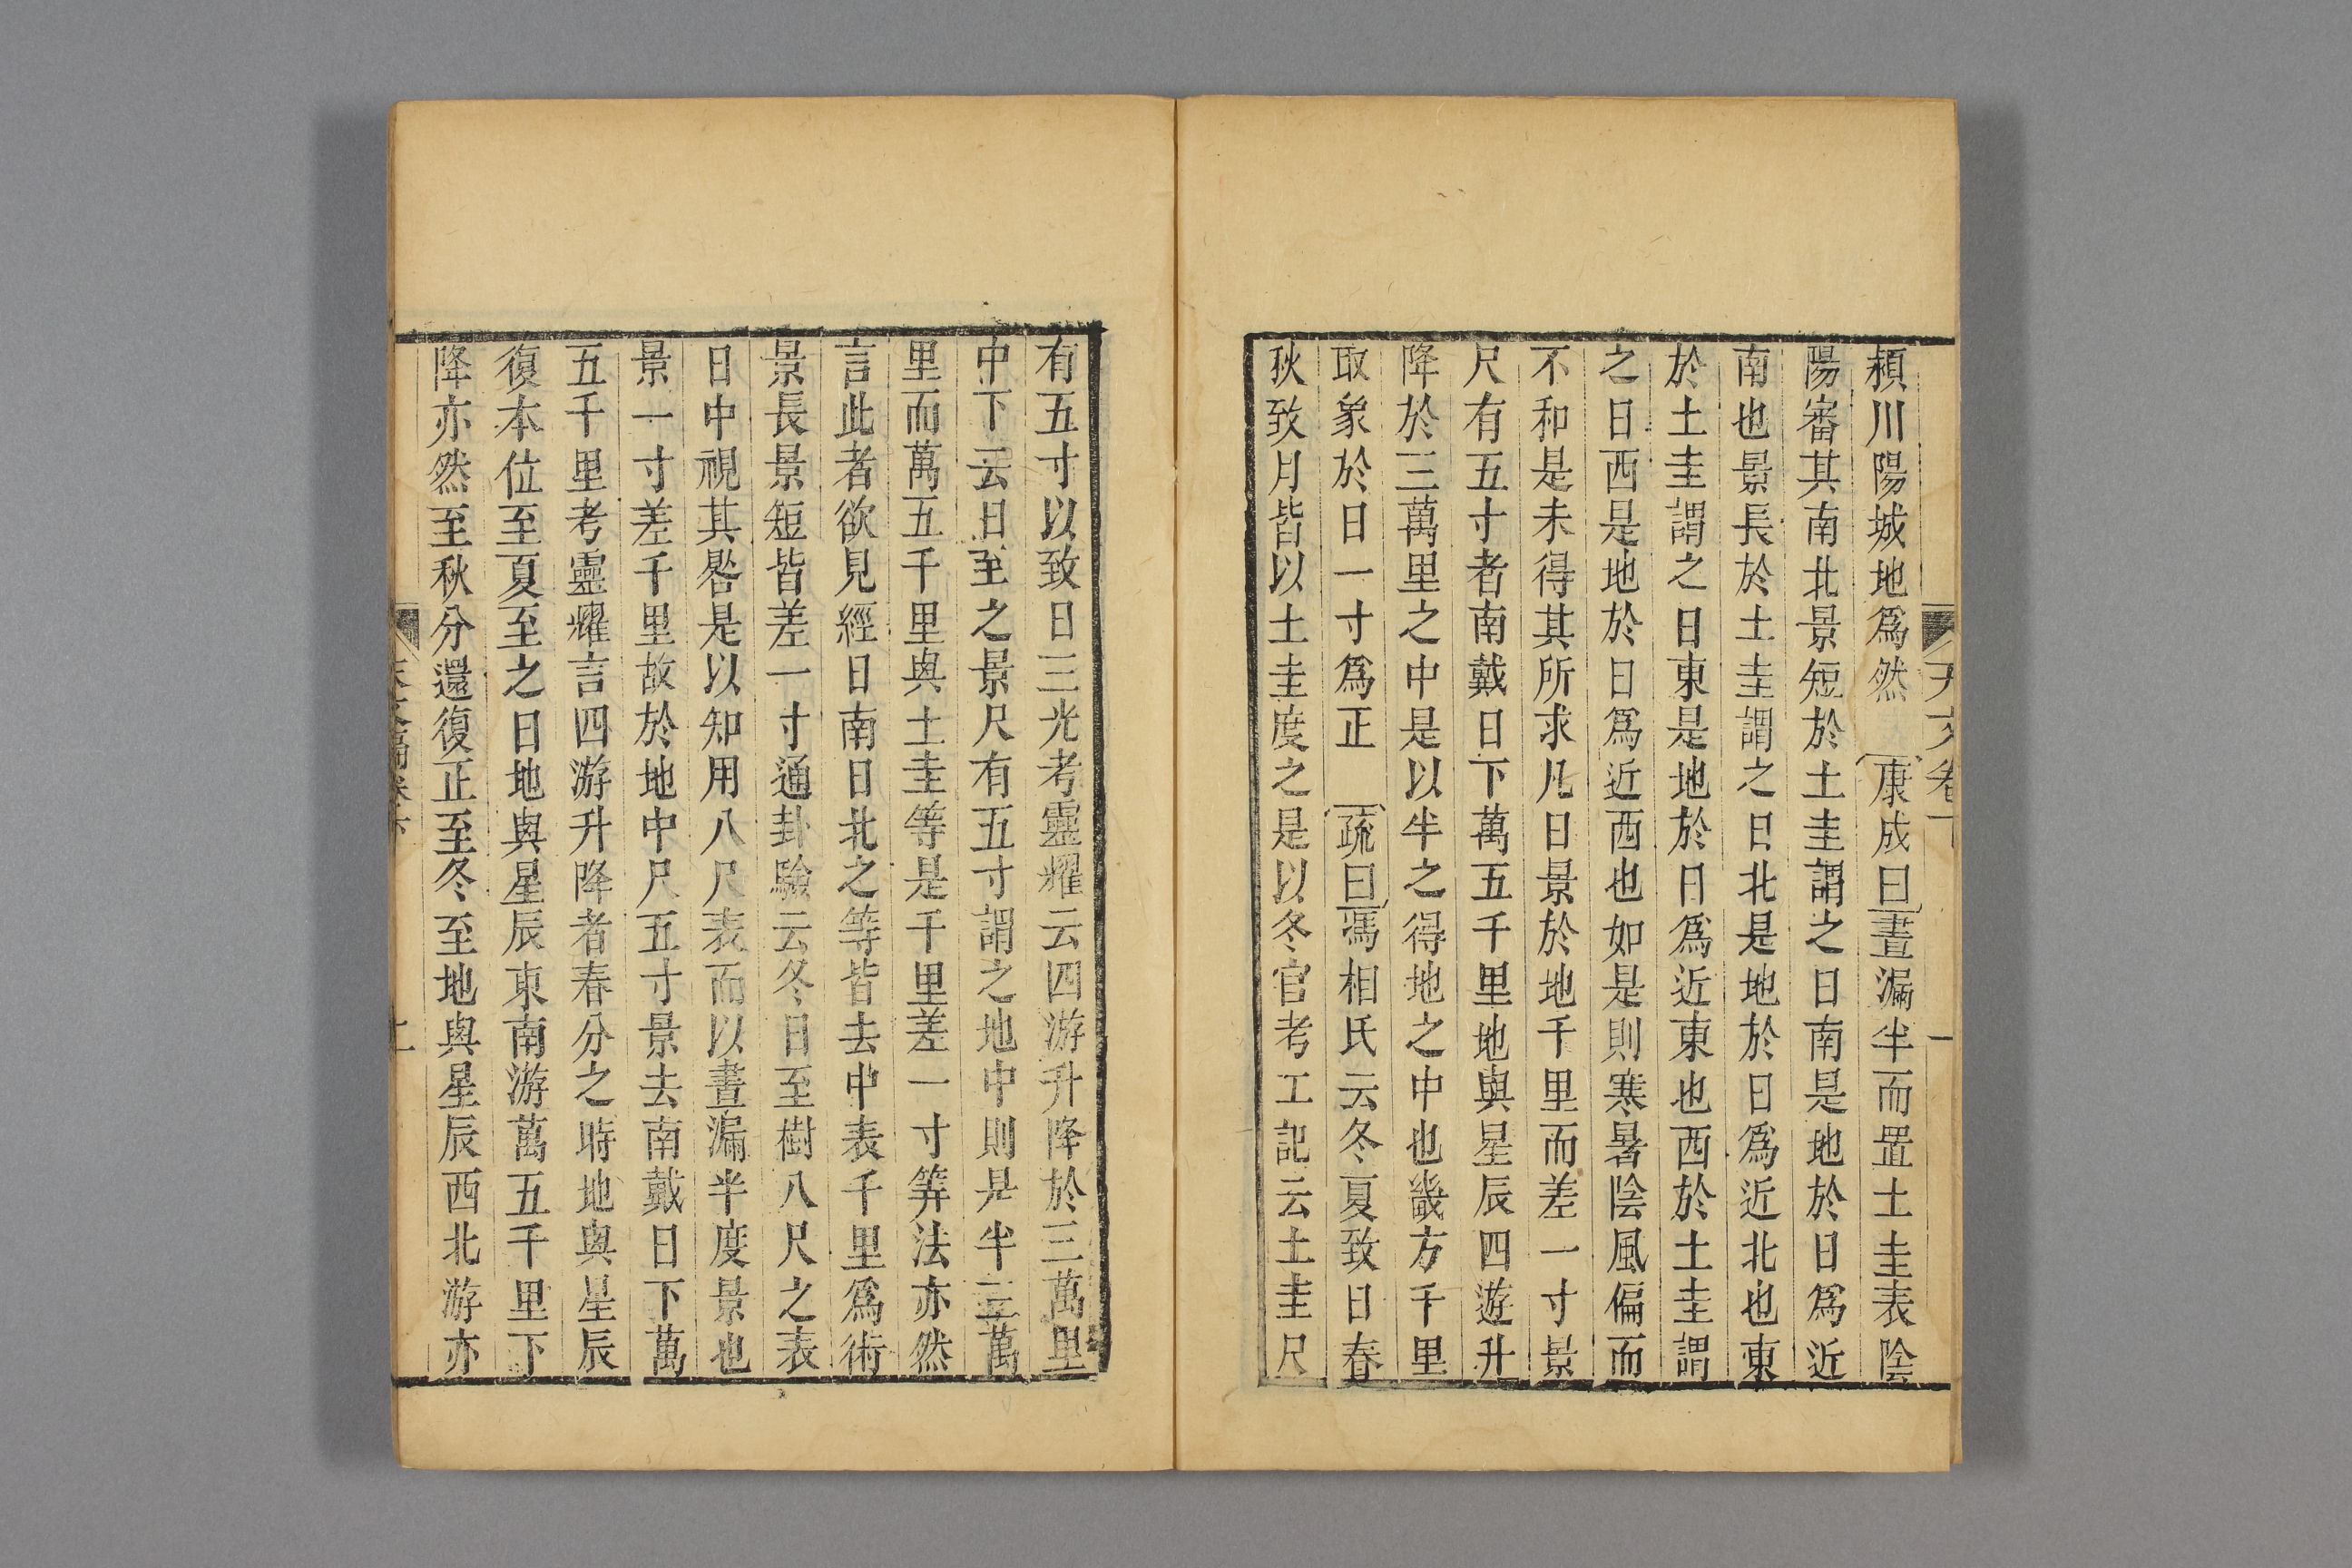 天文卷下
一
頴川陽城地爲然 康成曰晝漏半而置土圭表陰
陽審其南北景短於土圭謂之日南是地於日爲近
南也景長於土圭謂之日北是地於日爲近北也東
於土圭謂之日東是地於日爲近東也西於土圭謂
之日西是地於日爲近西也如是則寒暑陰風偏而
不和是未得其所求凡日景於地千里而差一寸景
尺有五寸者南戴日下萬五千里地與星辰四遊升
降於三萬里之中是以半之得地之中也畿方千里
取象於日一寸爲正 疏曰馮相氏云冬夏致日春
秋致月皆以土圭度之是以冬官考工記云土圭尺
有五寸以致日三光考靈耀云四游升降於三萬里
中下云日至之景尺有五寸謂之地中則是半三萬
里而萬五千里與土圭等是千里差一寸筭法亦然
言此者欲見經日南日北之等皆去中表千里爲術
景長景短皆差一寸通卦驗云冬日至樹八尺之表
日中視其晷是以知用八尺表而以晝漏半度景也
景一寸差千里故於地中尺五寸景去南戴日下萬
五千里考靈耀言四游升降者春分之時地與星辰
復本位至夏至之日地與星辰東南游萬五千里下
降亦然至秋分還復正至冬至地與星辰西北游亦